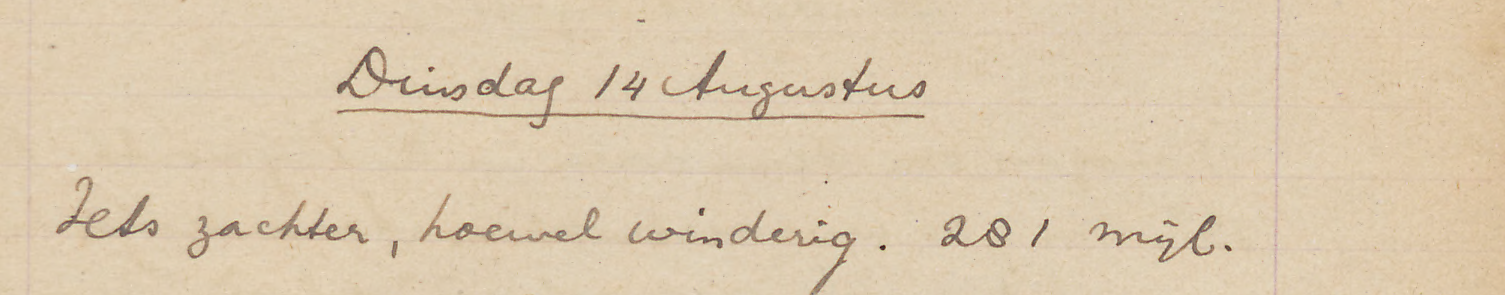 Dinsdag 14 Augustus
Iets zachter, hoewel winderig. 281 mijl.